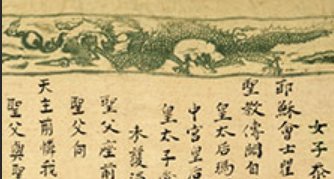 女子忝
耶穌會士瞿
聖教傳聞自
皇太后瑪
中宮皇后
皇太子
聖父座前
聖父向
天主前憐我
聖父與聖